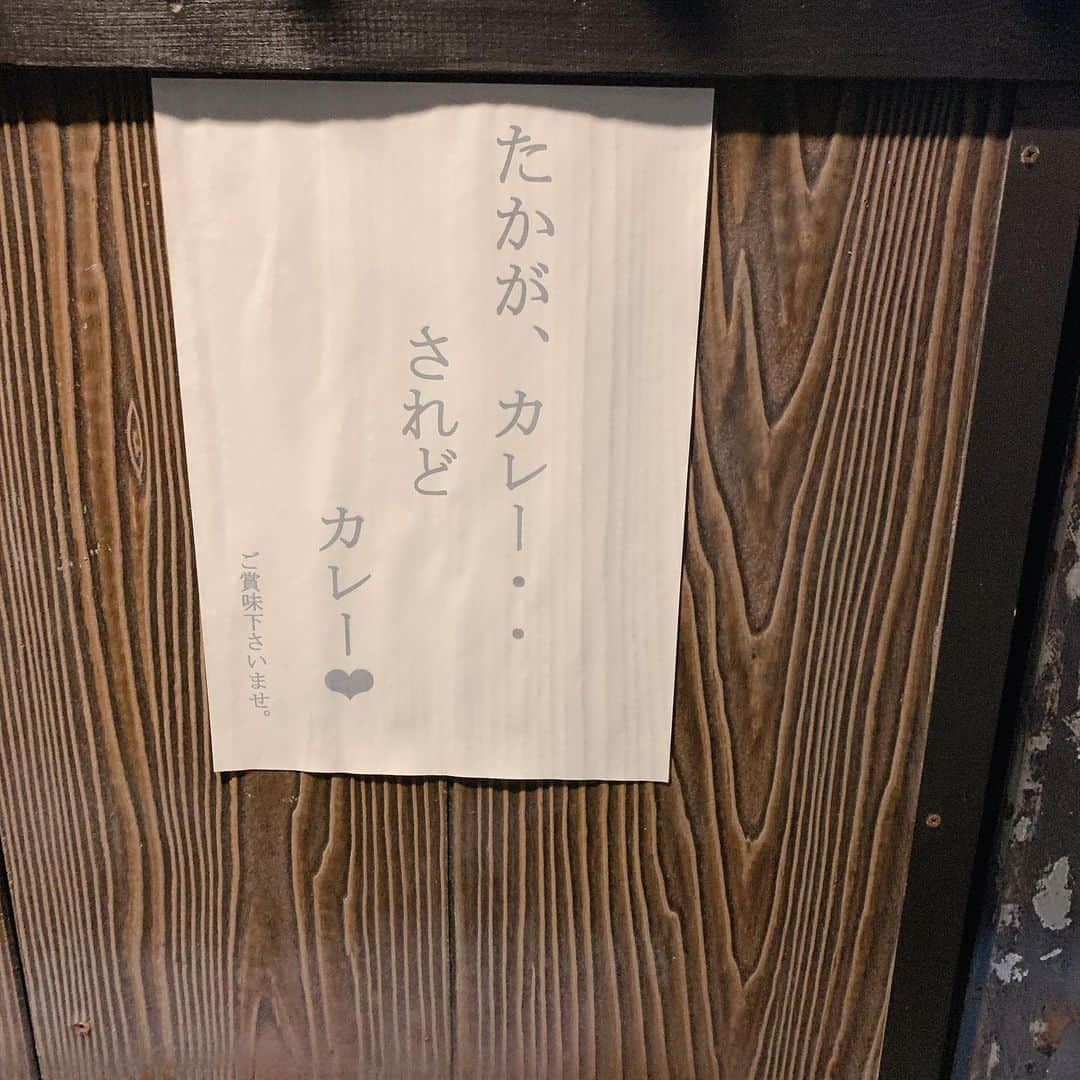 たかが、カレー・・
されど
カレー❤
ご賞味下さいませ。